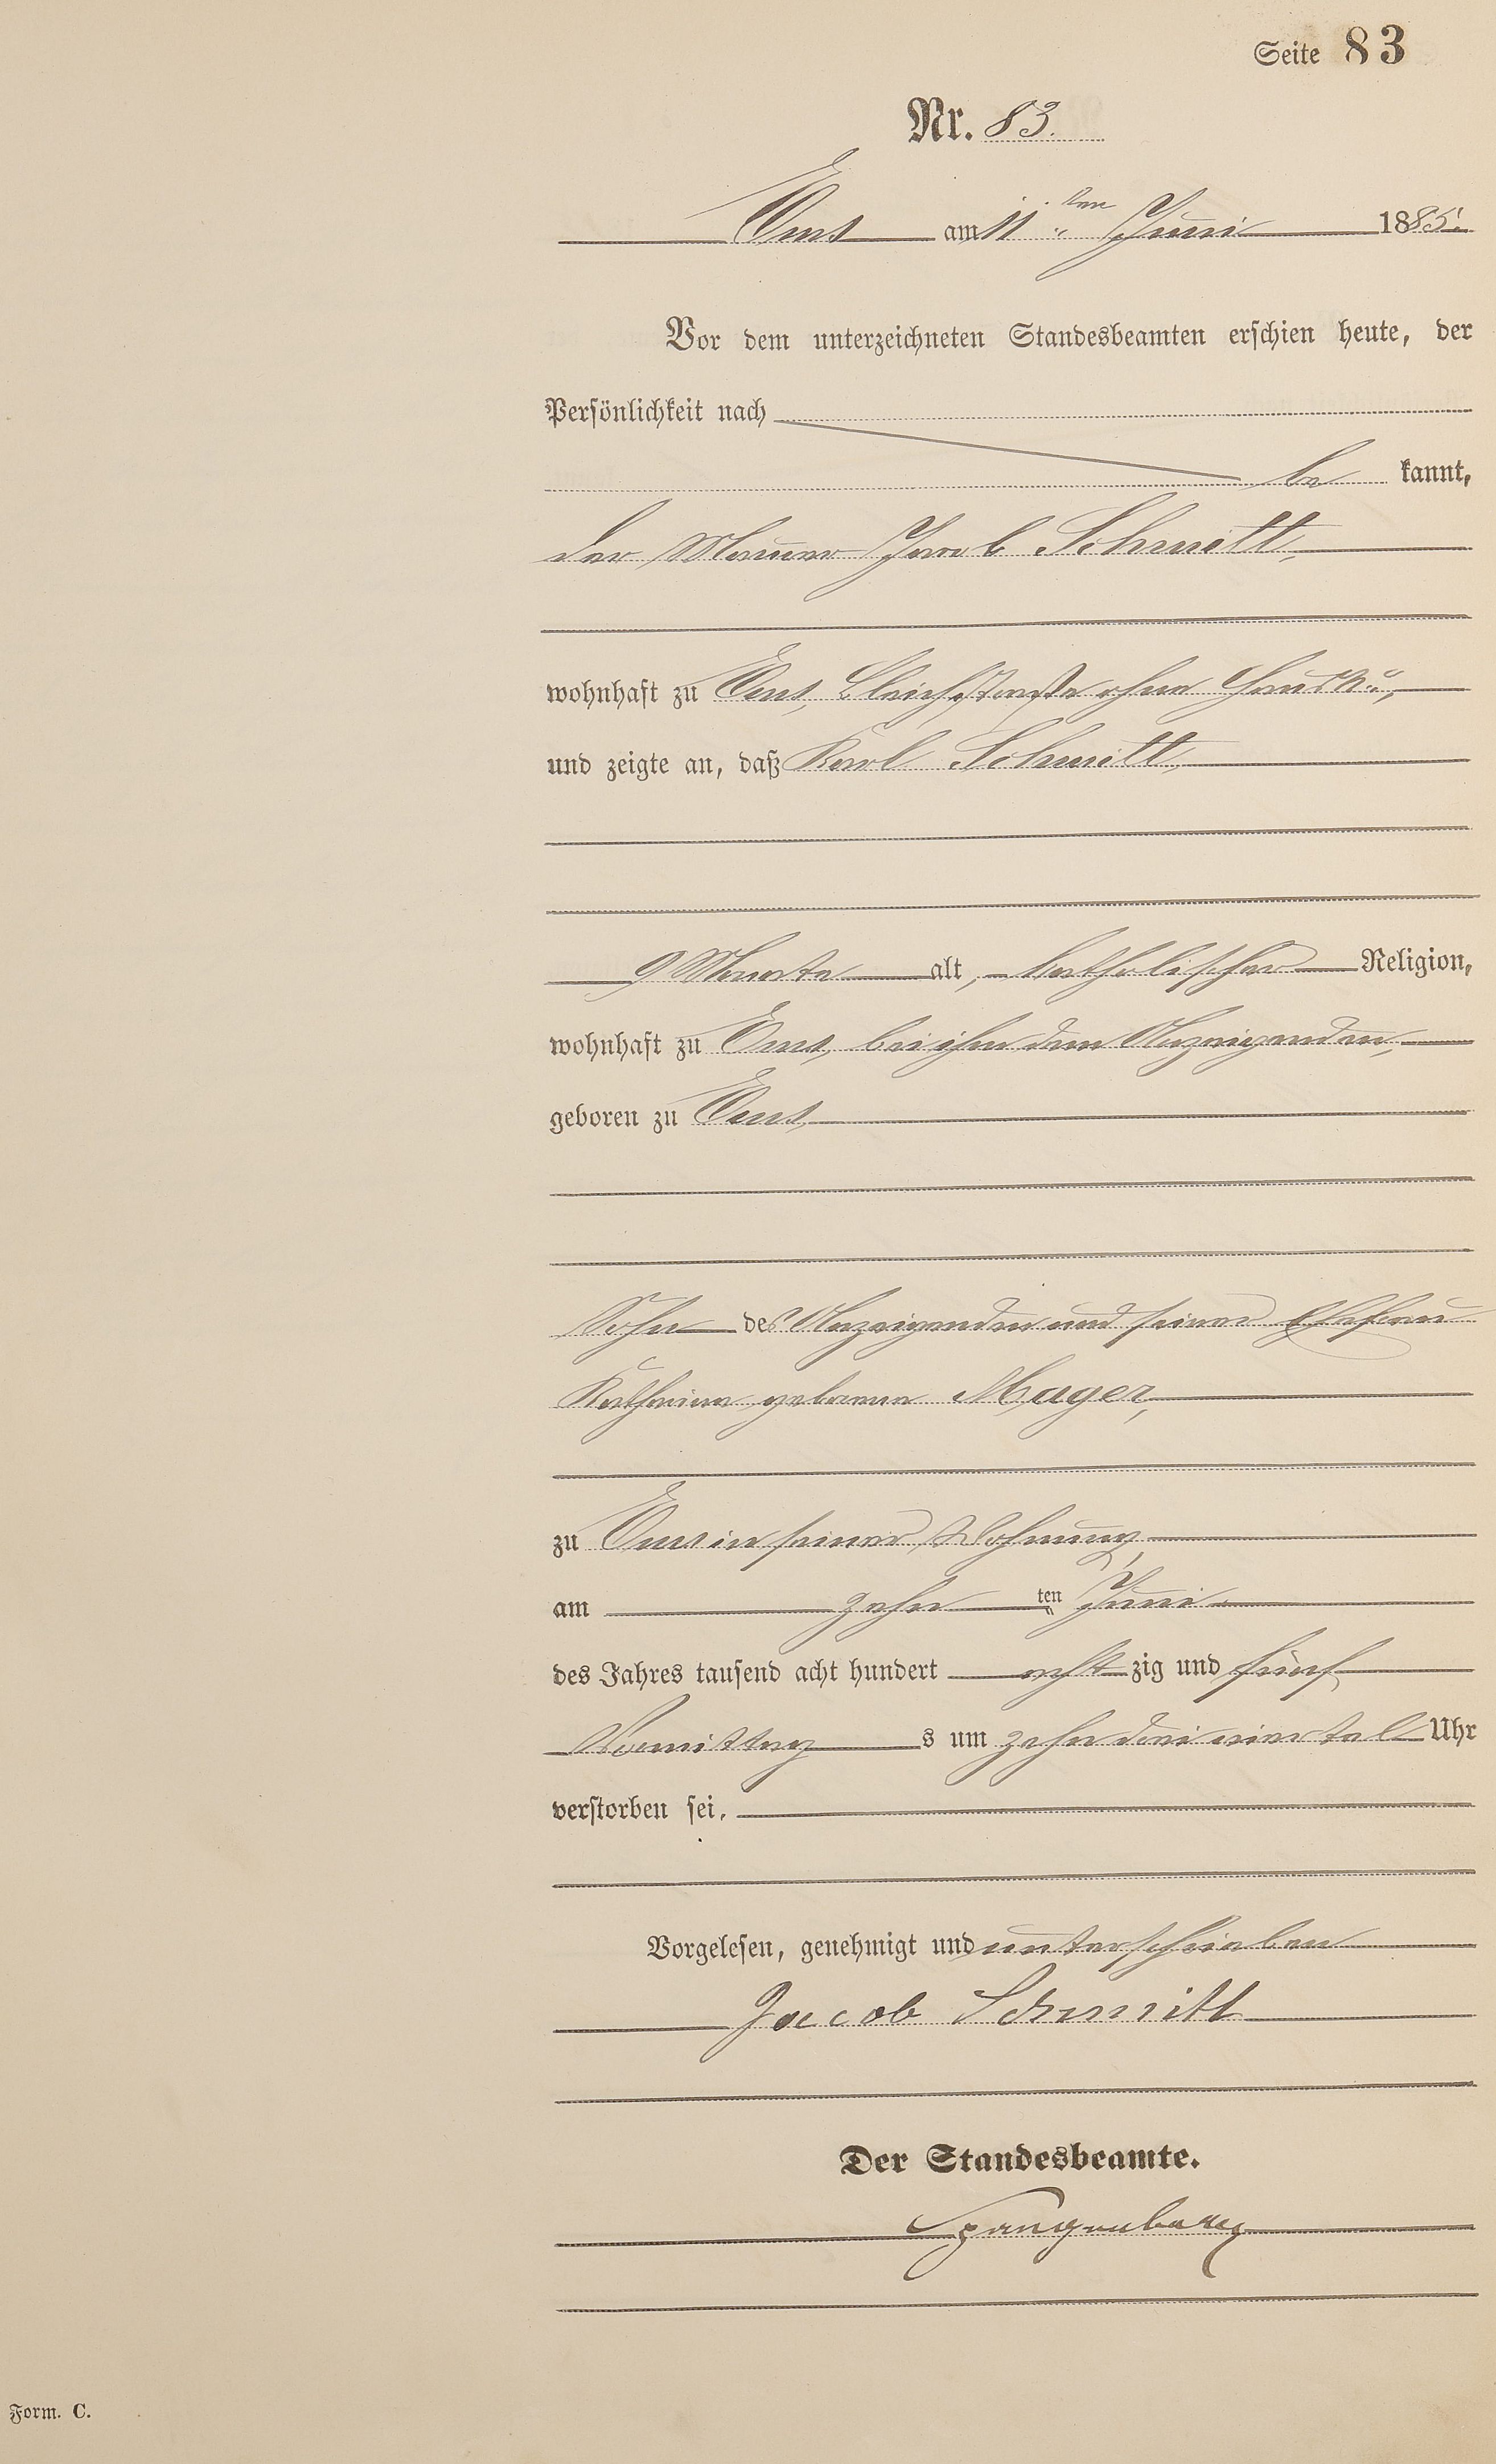 Seite 83
Nr. 83.
Ems am 11ten Juni 1885.
Vor dem unterzeichneten Standesbeamten erschien heute, der
Persönlichkeit nach
be kannt,
der Maurer Jacob Schmitt,
wohnhaft zu Ems, Bleichstraße ohne Haus N°,
und zeigte an, daß Karl Schmitt,
9 Monate alt, katholischer Religion,
wohnhaft zu Ems, bei ihm dem Anzeigenden,
geboren zu Ems,
Sohn des Anzeigenden und seiner Ehefrau
Katharina geborene Mager,
zu Ems in seiner Wohnung,
am zehn ten Juni
des Jahres tausend acht hundert acht zig und fünf
Vormittag s um zehn drei viertel Uhr
verstorben sei.
Vorgelesen, genehmigt und unterschrieben
Jacob Schmitt
Der Standesbeamte.
Spangenberg
Form. C.